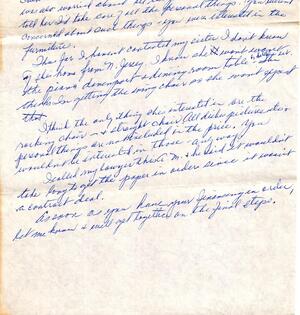 we also worried about all
tell her I'd take care of all the personal things. You weren't
concerned about such things - you were interested in the
furniture.
Thus far I haven't contacted my sister & don't know
if she's home from N. Jersey. I know she'd want
the piano davenport & dining room table - the set.
thinks I'm getting the wing chair as she won't get past
that.
I think the only thing she's interested in are the
rocking chair - & straight chair. All dishes pictures & other
personal things are not included in the price. You
wouldn't be interested in those - Any way.
I called my lawyer there in M. she said it wouldn't
take long to get the paper in order since it wasn't
a contract deal.
As soon as you have your financing in order,
let me know & we'll get together on the final steps.